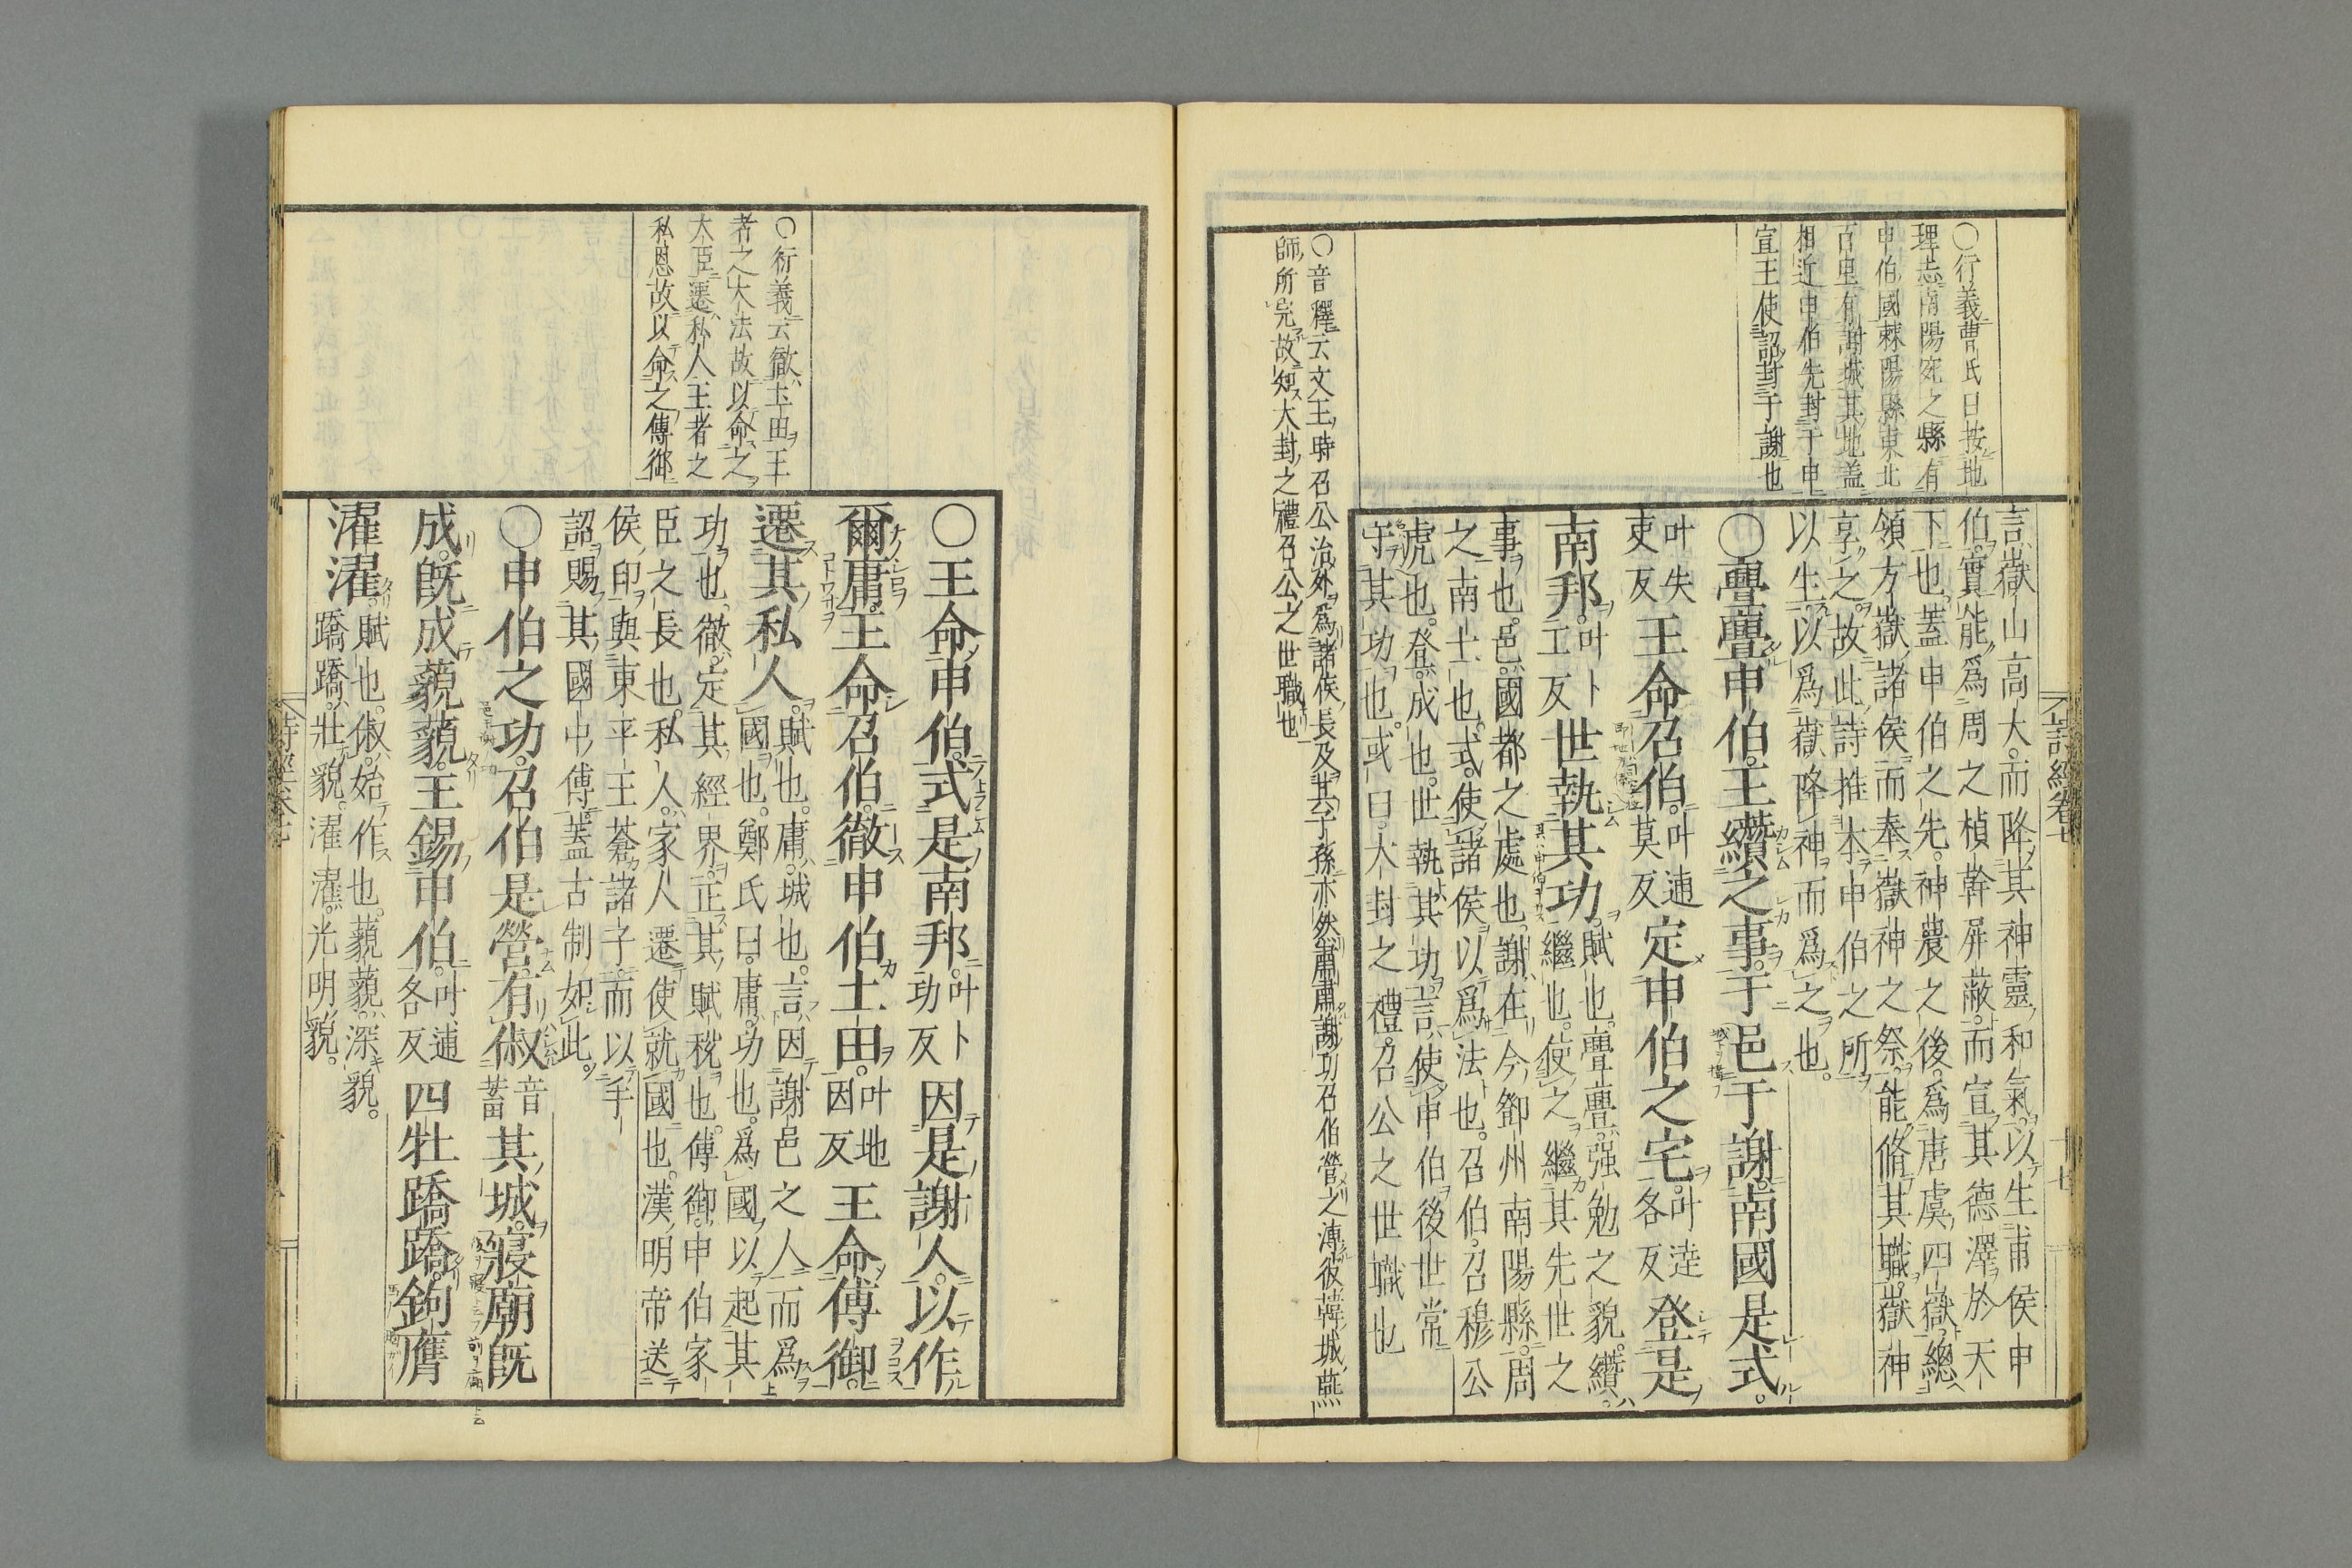 〇衍義曹氏曰按地
理志南陽宛之縣有
申伯國棘陽縣東北
百里有謝城其地蓋
相近申伯先封于申
宣王使詔封于謝也
言嶽山高大而降其神靈和氣以生甫侯申
伯實能爲周之楨幹屛蔽而宣其德澤於天
下也蓋申伯之先神農之後爲唐虞四嶽總
領方嶽諸侯而奉嶽神之祭能脩其職嶽神
享之故此詩推本申伯之所
以生以爲嶽降神而爲之也
〇亹亹申伯王纘之事于邑于謝南國是式
叶失吏反王命召伯叶逋莫反定申伯之宅叶達各反登是
南邦叶卜工反世執其功賦也亹亹强勉之貌纘
繼也使之繼其先世之
事也邑國都之處也謝在今鄧州南陽縣周
之南土也式使諸侯以爲法也召伯召穆公
虎也登成也世執其功言使申伯後世常
守其功也或曰大封之禮召公之世職也
〇音釋云文王時召公治外爲諸侯長及其子孫亦然肅肅謝功召伯營之溥彼韓城燕
師所完故知大封之禮召公之世職也
詩經卷七
〇衍義云徹土田王
者之大法故以命之
大臣遷私人王者之
私恩故以命之傅御
〇王命申伯式是南邦叶卜功反因是謝人以作
爾庸王命召伯徹申伯土田叶地因反王命傅御
遷其私人賦也庸城也言因謝邑之人而爲
國也鄭氏曰庸功也爲國以起其
功也徹定其經界正其賦稅也傅御申伯家
臣之長也私人家人遷使就國也漢明帝送
侯印與東平王蒼諸子而以手
詔賜其國中傅蓋古制如此
〇申伯之功召伯是營有俶音蓄其城寢廟旣
成旣成藐藐王錫申伯叶逋各反四牡蹻蹻鉤膺
濯濯賦也俶始作也藐藐深貌
蹻蹻壯貌濯濯光明貌